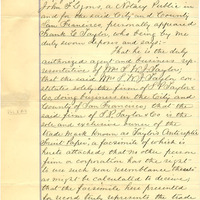 John F. Lyons, a Notary Public in
and for the said City and County
San Francisco, personally appeared
Frank C. Taylor who being by me
duly sworn deposes and says:
That he is the duly
authorized agent and business rep-
resentative of Mrs. S. W. J. Taylor,
that the said Mrs. S. W. J. Taylor con-
stitutes solely the firm of S. P. Taylor &
Co. doing business in the City and
County of San Francisco; that the
said firm of S. P. Taylor & Co. is the
sole and exclusive owner of the
Trade Mark Known as Taylor's Anti-septic
Fruit Paper, a facsimile of which is
hereto attached; that no other person
firm or corporation has the right
to use such near resemblance thereto
as might be calculated to deceive;
that the facsimile here presented
for record truly represents the trade